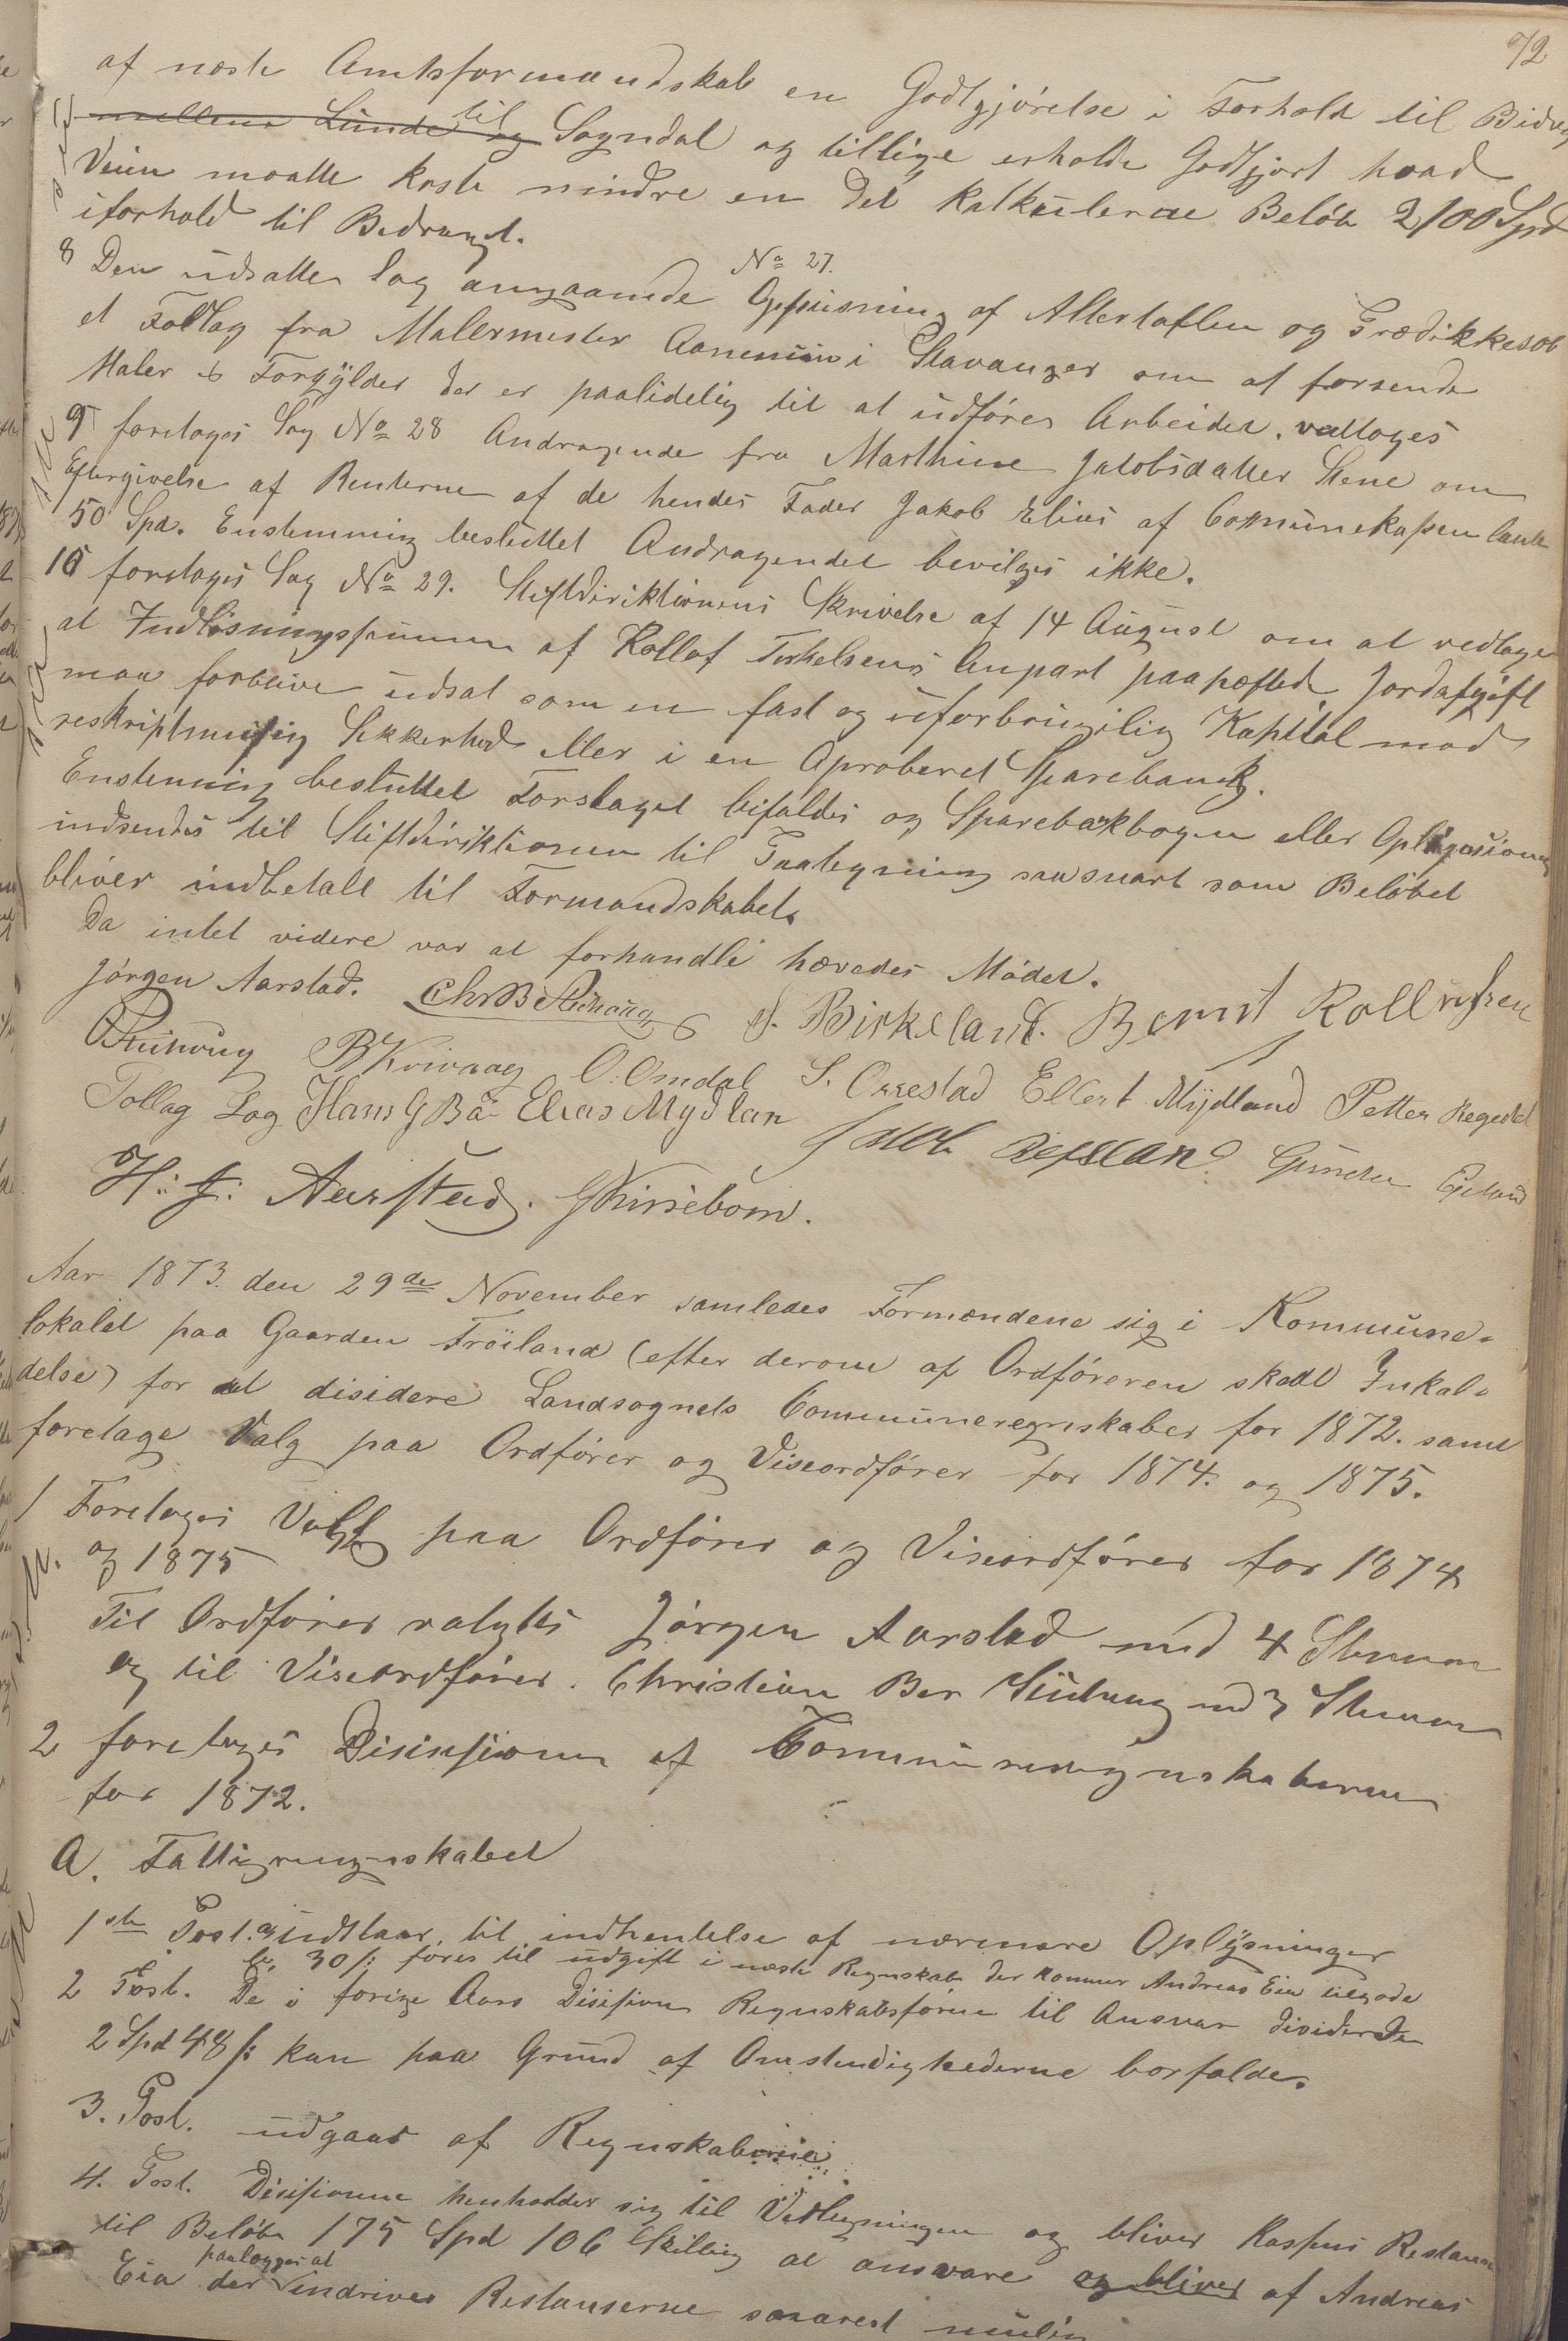 72
af næste Amtsformandskab en Godtgjörelse i Forhold til Bidrag
mellem Lunde og til Sogndal og tillige erholde Godtgjort hvad
Veien maatte koste mindre en det kalkulerede Belöb 2100 Spd
iforhold til Bedraget.
8 Den udsatte Sag angaaende No 27. Oppusning af Altertaflen og Prædikkesol
et Forslag fra Malermester Aanensen i Stavanger om at forsende
Maler & Forgylder der er paalidelig til at udföre Arbeidet, vedtoges
9 foretoges Sag No 28 Andragende fra Marthine Jakobsdatter Stene om
Eftergivelse af Renterne af de hendes Fader Jakob Elias af Communekassen laante
50 Spd. Enstemmig besluttet Andragendet bevilges ikke.
10 foretoges Sag No 29. Stiftdiriktionens Skrivelse af 14 August om at vedtage
at Indlösningssummen af Rollof Terkelsens Anpart paahæftede Jordafgift
maa forblive udsat som en fast og uforbrugelig Kapital mod
reskriptmæssig Sikkerhed eller i en Aproberet Sparebank.
Enstemmig besluttet Forslaget bifaldes og Sparebankbogen eller Opligasionen
indsendes til Stiftdiriktionen til Paategning saasnart som Belöbet
bliver indbetalt til Formandskabet.
Da intet videre var at forhandle hævedes Mödet.
Jörgen Aarstad. Chr B S. Birkeland. Bernt Rollefsen
B Kvivaag O. Omdal S. Orrestad Ellert Mydland Petter Regedal
Tollag Log Hans G Bö Elias Mydlan Jacob Refsland Gunder Egeland
H: J: Aarstad. G Kirsebom.
Aar 1873. den 29de November samledes Formændene sig i Kommune-
lokalet paa Gaarden Fröiland (efter derom af Ordföreren skedt Inkal-
delse) for at disidere Landsognets Communeregnskaber for 1872. samt
foretage Valg paa Ordförer og Viseordförer for 1874. og 1875.
1 Foretoges Valg paa Ordförer og Viseordförer for 1874
og 1875
Til Ordförer valgtes Jörgen Aarstad med 4 Stemmer
og til Viseordförer. Christian Ber med 3 Stemmer
2 foretoges Disisjionen af Communeregnskaberne
for 1872.
A. Fattigregnskabet
1ste Post. udstaar til indhentelse af nærmere Oplysninger
30 s: föres til udgift i næste Regnskab der kommer Andreas Eia tilgode
2 Post. De i forige Aars Disisjion Regnskabsföreren til Ansvar disiderede
2 Spd 48 s: kan paa Grund af Omstendighederne borfalde.
3. Post. udgaar af Regnskaberne
4. Post. Disisjionen henholder sig til Vedtegningen og bliver Kassens Restance
til Belöb 175 Spd 106 Skilling at ansvare og bliver af Andreas
Eia der paalægges at indrive Restanserne snarest mulig